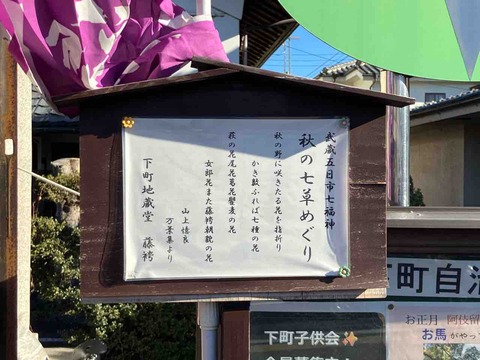 武蔵五日市七福神
秋の七草めぐり
秋の野に咲きたる花を指折り
かき数ふれば七種の花
萩の花尾花葛花瞿麦の花
女郎花また藤袴朝貌の花
山上憶良
万葉集より
下町地蔵堂 藤袴
下町自治
お正月 阿伎留
お馬がやっ
下町子供会✨